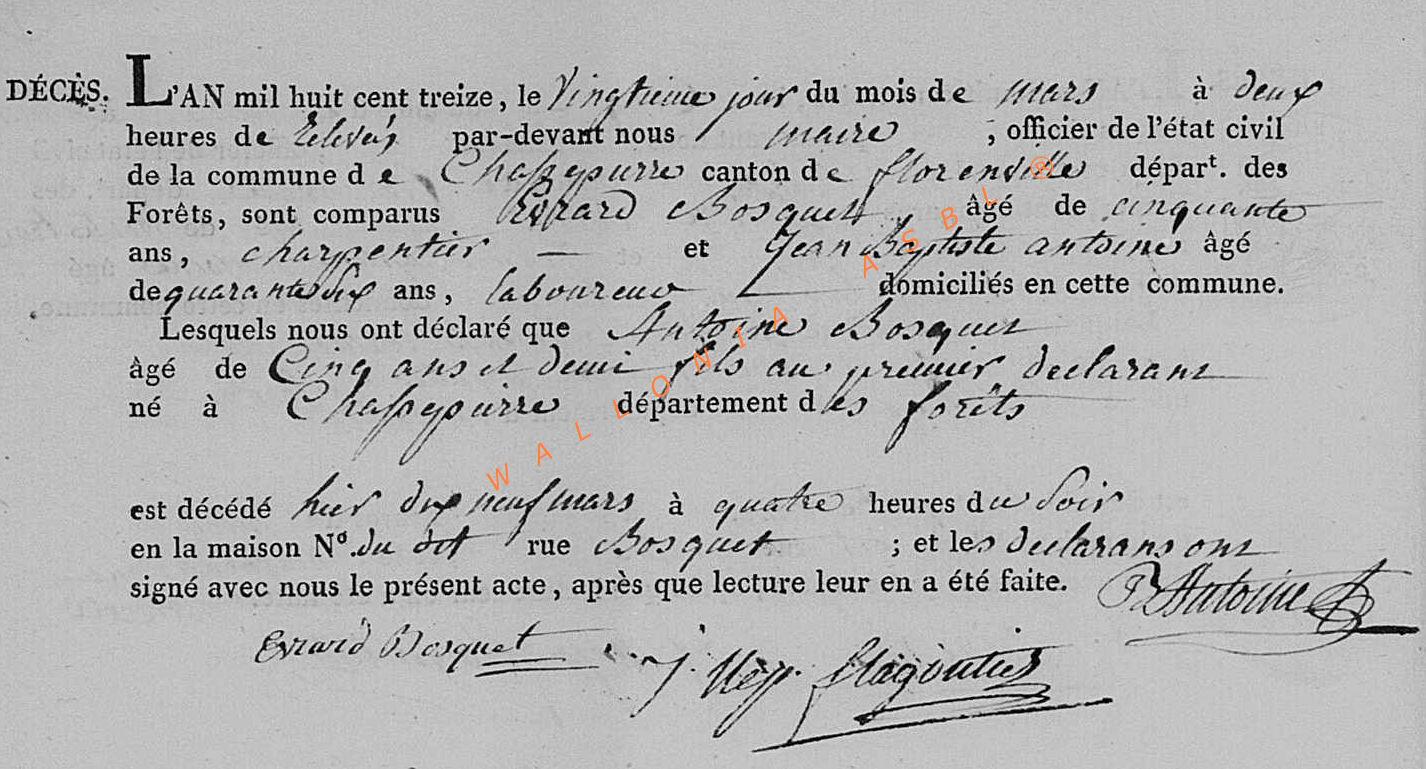 DÉCÈS. L'AN mil huit cent treize, le Vingtieme jour du mois de mars à deux
heures de Relevés par-devant nous maire ; officier de l'état civil
de la commune de Chassepierre canton de florenville départ. des
Forêts, sont comparus Evrard Bosquet âgé de cinquante
ans, charpentier — et Jean Baptiste antoine âgé
de quarante six ans, laboureur — domiciliés en cette commune.
Lesquels nous ont déclaré que Antoine Bosquet
âgé de Cinq ans et demi fils au premier declarant
né à Chassepierre département des forêts
est décédé hier dix neuf mars à quatre heures du Soir
en la maison Nº. du dit rue Bosquet ; et les declarans ont
signé avec nous le présent acte, après que lecture leur en a été faite.
Antoine
Evrard Bosquet
WALLONIA ASBL ®